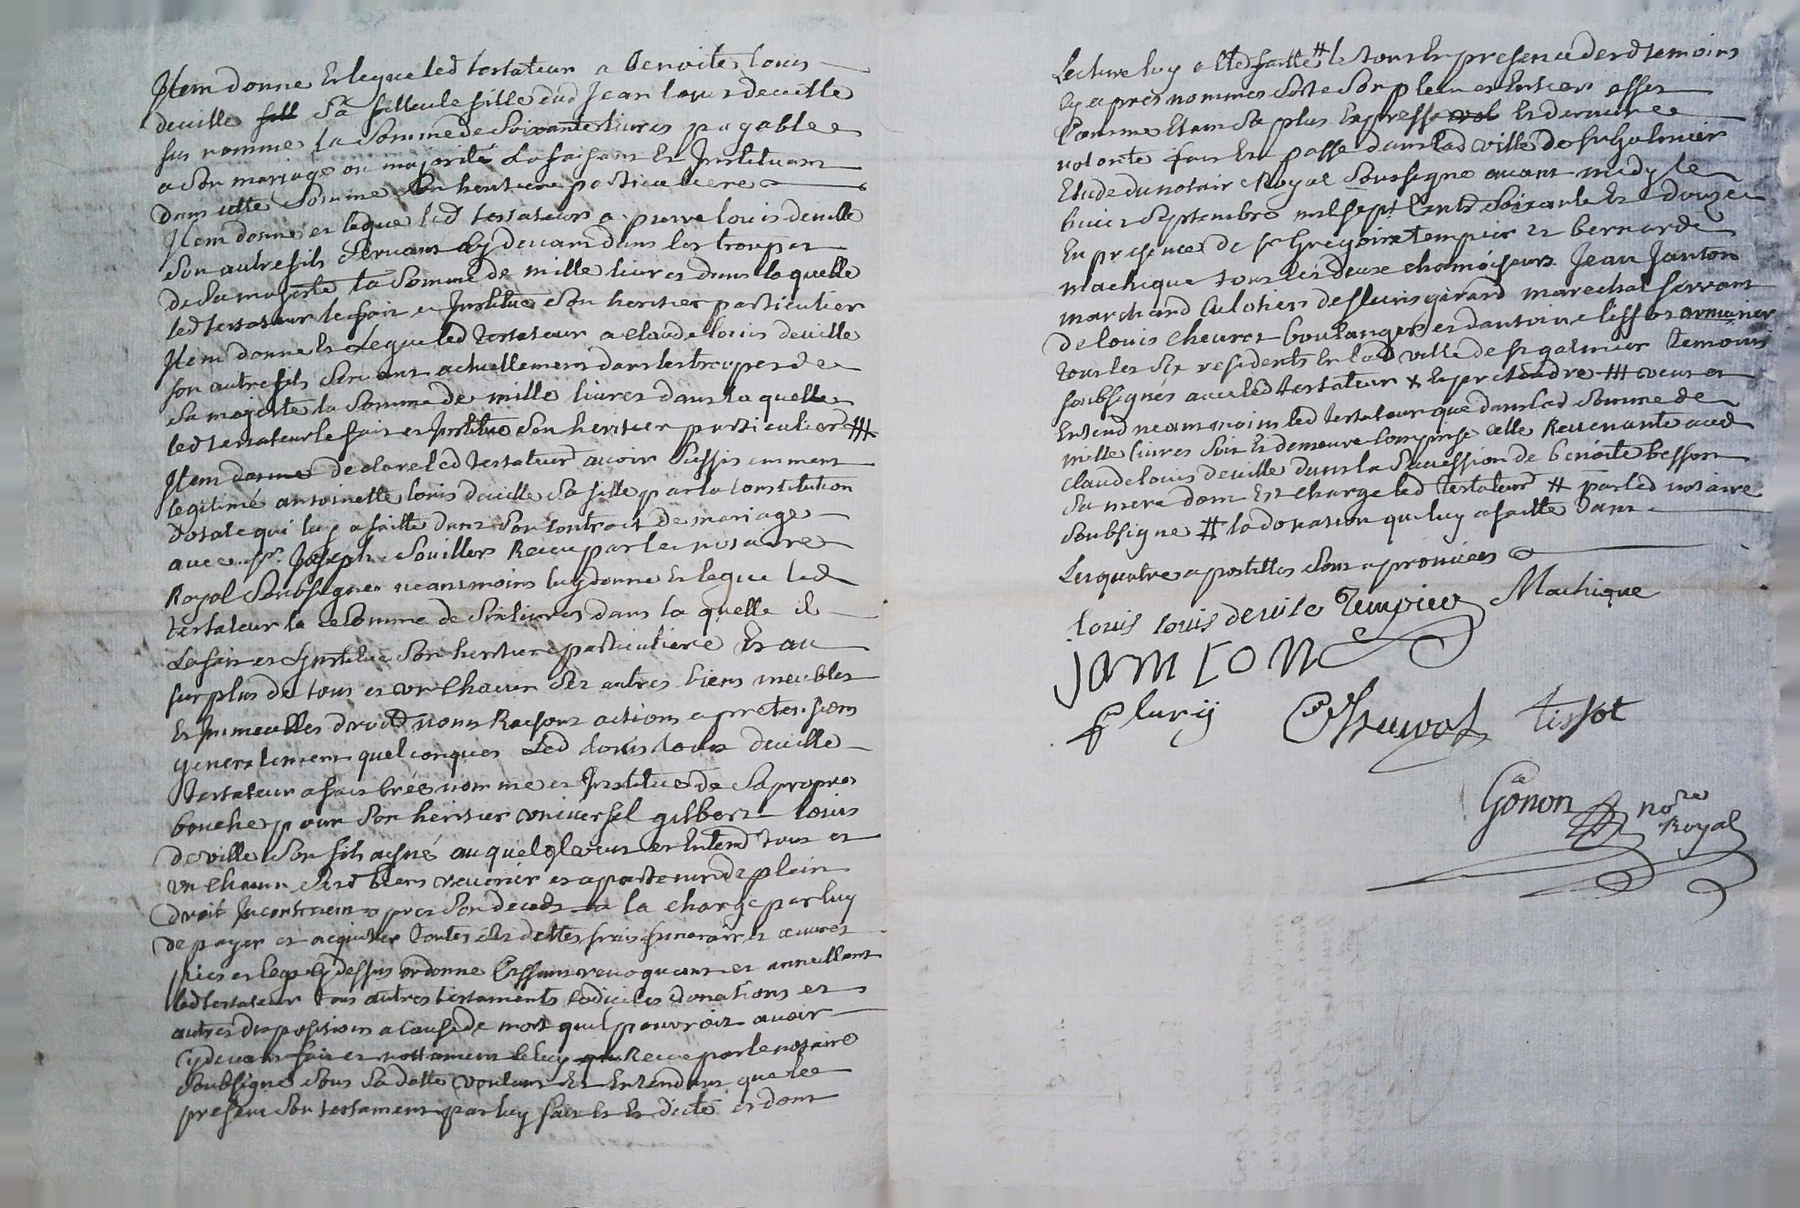 Item donne Et legue led testateur a Benoite Louis
deville fill Sa filleule fille dud Jean Louis deville
sus nommé la Somme de Soixante livres payable
a Son mariage ou majorité La faisant Et Instituant
dans cette Somme Son heritiere particuliere
Item donne et legue led testateur a pierre louis deville
Son autre fils Servant Cy devant dans les troupes
de Sa majesté la Somme de mille livres dans laquelle
led testateur le fait et Institue Son heritier particulier
Item donne Et Legue led testateur a claude louis deville
son autre fils Servant actuellement dans les troupes de
Sa majesté la Somme de mille livres dans laquelle
led testateur le fait et Institue Son heritier particulier #
Item donne declare led testateur avoir Suffisamment
legitimé antoinette louis deville Sa fille par la Constitution
dotale qui luy a faitte dans Son Contrat de mariage
avec Sr. Joseph Souillers Receu par le notaire
Royal Soubsigné neantmoins luy donne Et legue led
testateur la Somme de Six livres dans laquelle il
La fait et Institue Son heritiere particuliere Et au
surplus de tous et un Chacun Ses autres biens meubles
Et Immeubles droits noms Raisons actions et pretensions
generalement quelconques Led Louis Louis deville
testateur a fait créé nommé et Institué de Sa propre
bouche pour Son héritier universel gilbert Louis
deville Son fils aisné auquel Il veut et Entend tous et
un Chacun Sesd biens revenir et apartenir de plein
droit Incontinent apres Son deceds a la charge par luy
de payer et acquitter toutes Ses dettes frais funeraires œuvres
pies et legs Cy dessus ordonné Cassant revoquant et annullant
led testateur tous autres testaments Codiciles donations et
autres dispositions a Cause de mort quil pourroit avoir
Cydevant fait et nottament Celuy que Receu par le notaire
Soubsigné Sous Sa datte voulant Et Entendant que le
present Son testament par luy fait Et Et dicté et dont
Lecture luy a Eté faitte # le tout En presence desd temoins
Cy apres nommés Sorte Son plein et Entier effet
Comme Etant Sa plus Expresse vol Et derniere
volonté fait Et passé dans lad ville de St Galmier
Etude du notaire Royal Soussigné avant midy le
huict Septembre mil Sept Cents Soixante Et Douze
En presence de Sr Gregoire tempier et bernard
machique tous les deux chamoiseurs Jean Janton
marchand Culotier de fleuris girard marechal ferrant
de louis cheurot boulanger et d'antoine tissot armurier
tous les Six residents En lad ville de St galmier temoins
soubsignés avec led testateur # veut et
Entend neantmoins led testateur que dans lad Somme de
mille livres Soit Et demeure Comprise Celle Revenante aud
claude louis deville dans la Succession de benoite besson
Sa mere dont Est chargé led testateur # par led notaire
Soubsigné # la donation que luy a faitte dans
Les quatre apostilles Sont aprouvées
Louis Louis devile Tempier Machique
JANTON
fleury Cheurot tissot
Gonon nore
Royal